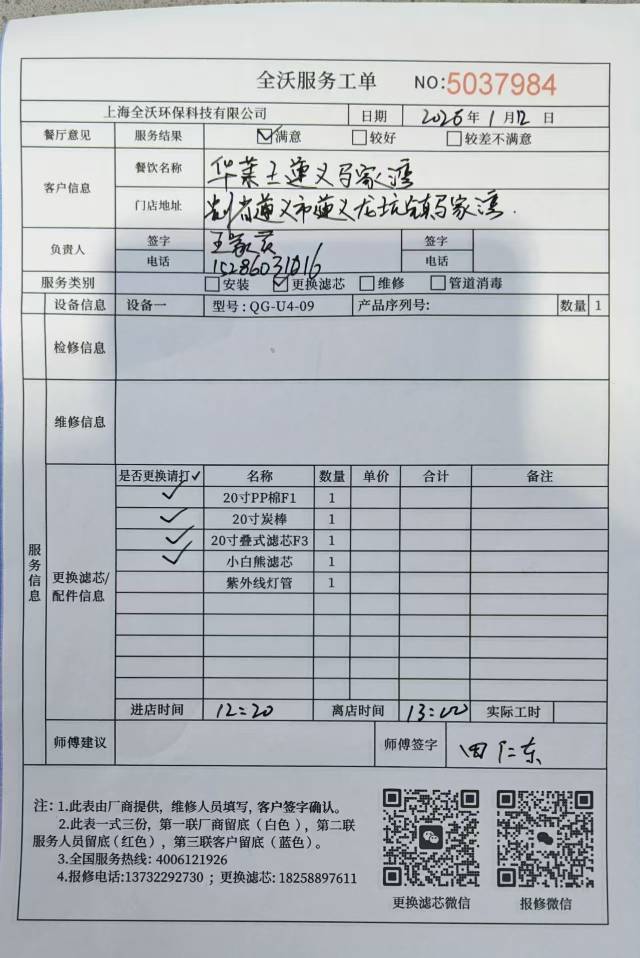 全沃服务工单 NO:5037984
上海全沃环保科技有限公司 日期 2026年1月12日
餐厅意见 服务结果 ☑满意 □较好 □较差不满意
客户信息 餐饮名称 华莱士遵义马家湾
门店地址 贵州省遵义市遵义龙坑镇马家湾.
负责人 签字 签字
电话 15286031016 电话
服务类别 □安装 ☑更换滤芯 □维修 □管道消毒
设备信息 设备一 型号:QG-U4-09 产品序列号: 数量 1
检修信息
维修信息
服务信息
更换滤芯/
配件信息
是否更换请打✓ 名称 数量 单价 合计 备注
✓ 20寸PP棉F1 1
✓ 20寸炭棒 1
✓ 20寸叠式滤芯F3 1
✓ 小白熊滤芯 1
紫外线灯管 1
进店时间 12:20 离店时间 13:00 实际工时
师傅建议 师傅签字 田仁东
注:1.此表由厂商提供,维修人员填写,客户签字确认。
2.此表一式三份,第一联厂商留底(白色),第二联
服务人员留底(红色),第三联客户留底(蓝色)。
3.全国服务热线:4006121926
4.报修电话:13732292730;更换滤芯:18258897611
更换滤芯微信 报修微信